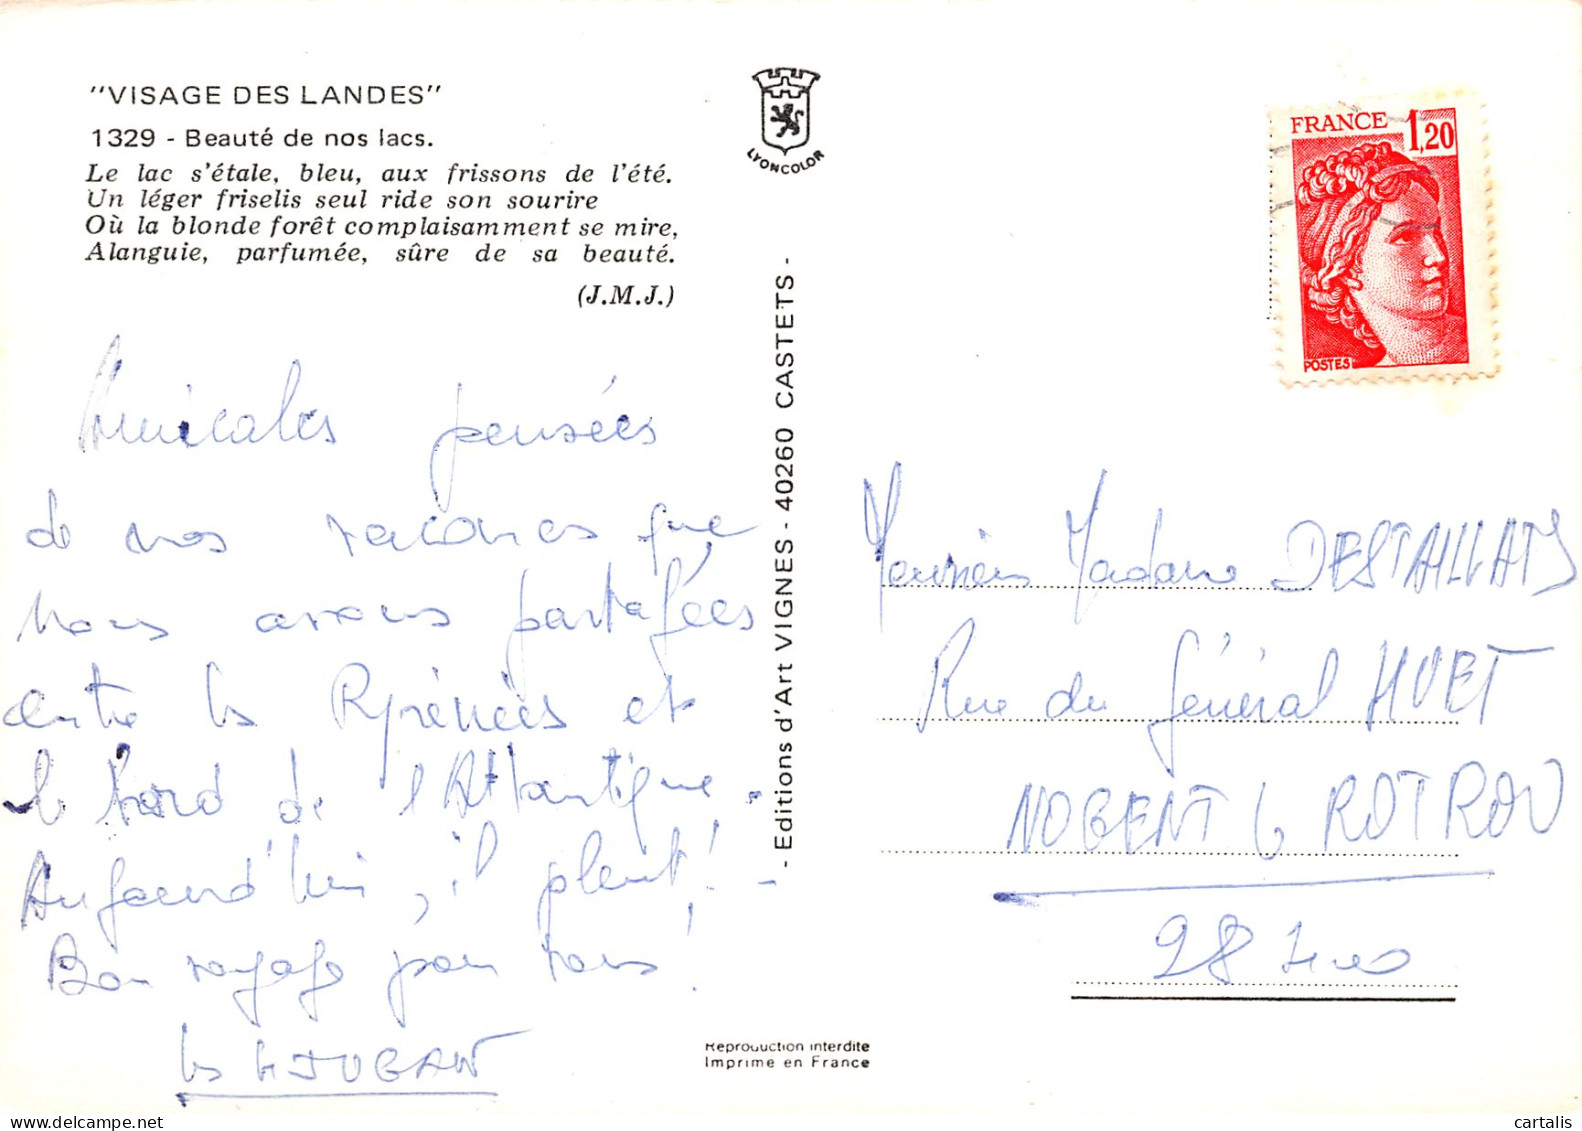 "VISAGE DES LANDES"
1329 - Beauté de nos lacs.
Le lac s'étale, bleu, aux frissons de l'été.
Un léger friselis seul ride son sourire
Où la blonde forêt complaisamment se mire,
Alanguie, parfumée, sûre de sa beauté.
(J.M.J.)
Amicales pensées
de nos vacances que
nous avons partagées
entre les Pyrénées et
le bord de l'Atlantique.
Aujourd'hui, il pleut! -
Bon voyage pour vous!
les
LYONCOLOR
- Editions d'Art VIGNES - 40260 CASTETS -
Reproduction interdite
Imprimé en France
FRANCE 1,20
POSTES
Monsieur Madame DESTAILLATS
Rue du Général HUET
NOGENT le ROTROU
28
cartalis